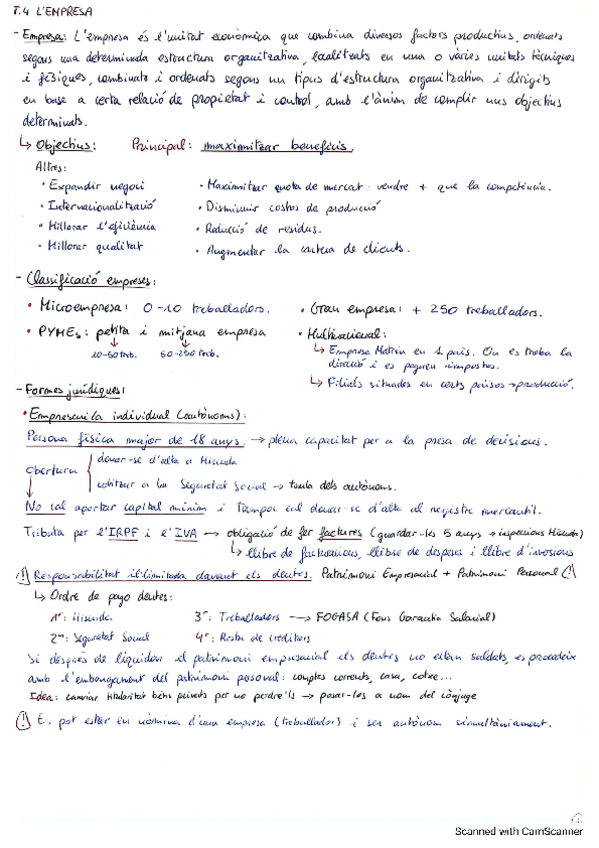 T.4 L'EMPRESA
- Empresa: L'empresa és l'unitat econòmica que combina diversos factors productius, ordenats
segons una determinada estructura organitzativa, localitzats en una o vàries unitats tècniques
i físiques, combinats i ordenats segons un tipus d'estructura organitzativa i dirigits
en base a certa relació de propietat i control, amb l'ànim de complir uns objectius
determinats.
↳ Objectius: Principal: maximitzar beneficis.
Altres:
· Expandir negoci · Maximitzar quota de mercat: vendre + que la competència.
· Internacionalització · Disminuir costos de producció
· Millorar l'eficiència · Reducció de residus.
· Millorar qualitat · Augmentar la cartera de clients.
- Classificació empreses:
• Microempresa: 0-10 treballadors. • Gran empresa: + 250 treballadors.
• PYMEs: petita i mitjana empresa • Multinacional:
10-50 treb. 50-250 treb. ↳ Empresa Matriu en 1 país. On es troba la
direcció i es paguen impostos.
↳ Filials situades en certs països → producció.
- Formes jurídiques:
• Empresari/a individual (autònoms):
Persona física major de 18 anys. → plena capacitat per a la presa de decisions.
obertura donar-se d'alta a Hisenda
cotitzar a la Seguretat Social → tanda dels autònoms.
No cal aportar capital mínim i Tampoc cal donar-se d'alta al registre mercantil.
Tributa per l'IRPF i l'IVA → obligació de fer factures (guardar-les 5 anys → inspeccions Hisenda)
↳ llibre de facturacions, llibre de despeses i llibre d'inversions
(!) Responsabilitat il·limitada davant els deutes. Patrimoni Empresarial + Patrimoni Personal (!)
↳ Ordre de pago deutes:
1er: Hisenda 3er: Treballadors → FOGASA (Fons Garantia Salarial)
2on: Seguretat Social 4rt: Resta de creditors
Si després de liquidar el patrimoni empresarial els deutes no estan saldats, es procedeix
amb l'embargament del patrimoni personal: comptes corrents, casa, cotxe...
Idea: canviar titularitat béns privats per no perdre'ls → passar-los a nom del cònjuge
(!) E. pot estar en nòmina d'una empresa (treballador) i ser autònom simultàniament.
Scanned with CamScanner